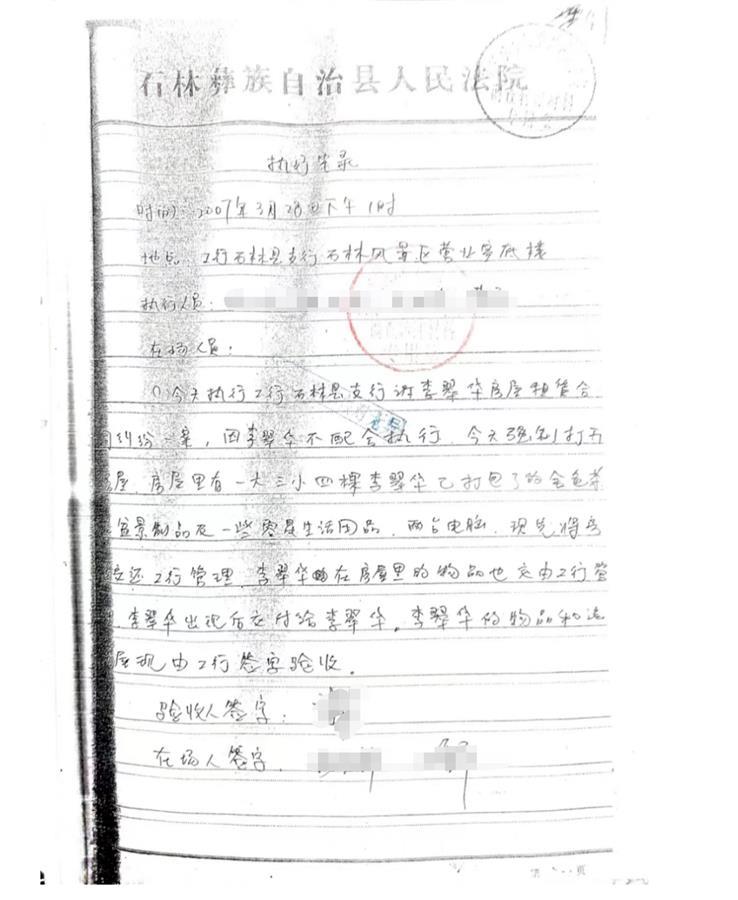 石林彝族自治县人民法院
执行笔录
时间：2007年3月28日下午1时
地点：工行石林县支行石林风景区营业室底楼
执行人员：
在场人员：
今天执行工行石林县支行诉李翠华房屋租赁合
纠纷一案，因李翠华不配合执行，今天强制打开
屋，房屋里有一大三小四棵李翠华已打包了的金
盆景制品及一些零星生活用品，两台电脑，现先将房
还工行管理，李翠华在房屋里的物品也交由工行管
李翠华出现后交付给李翠华。李翠华的物品和
屋现由工行签字验收。
验收人签字：
在场人签字：
第 页